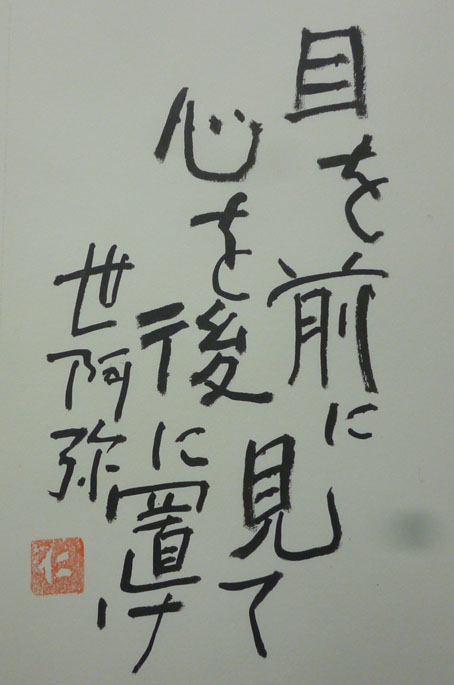 目を前に見て
心を後に置け
世阿弥
仁